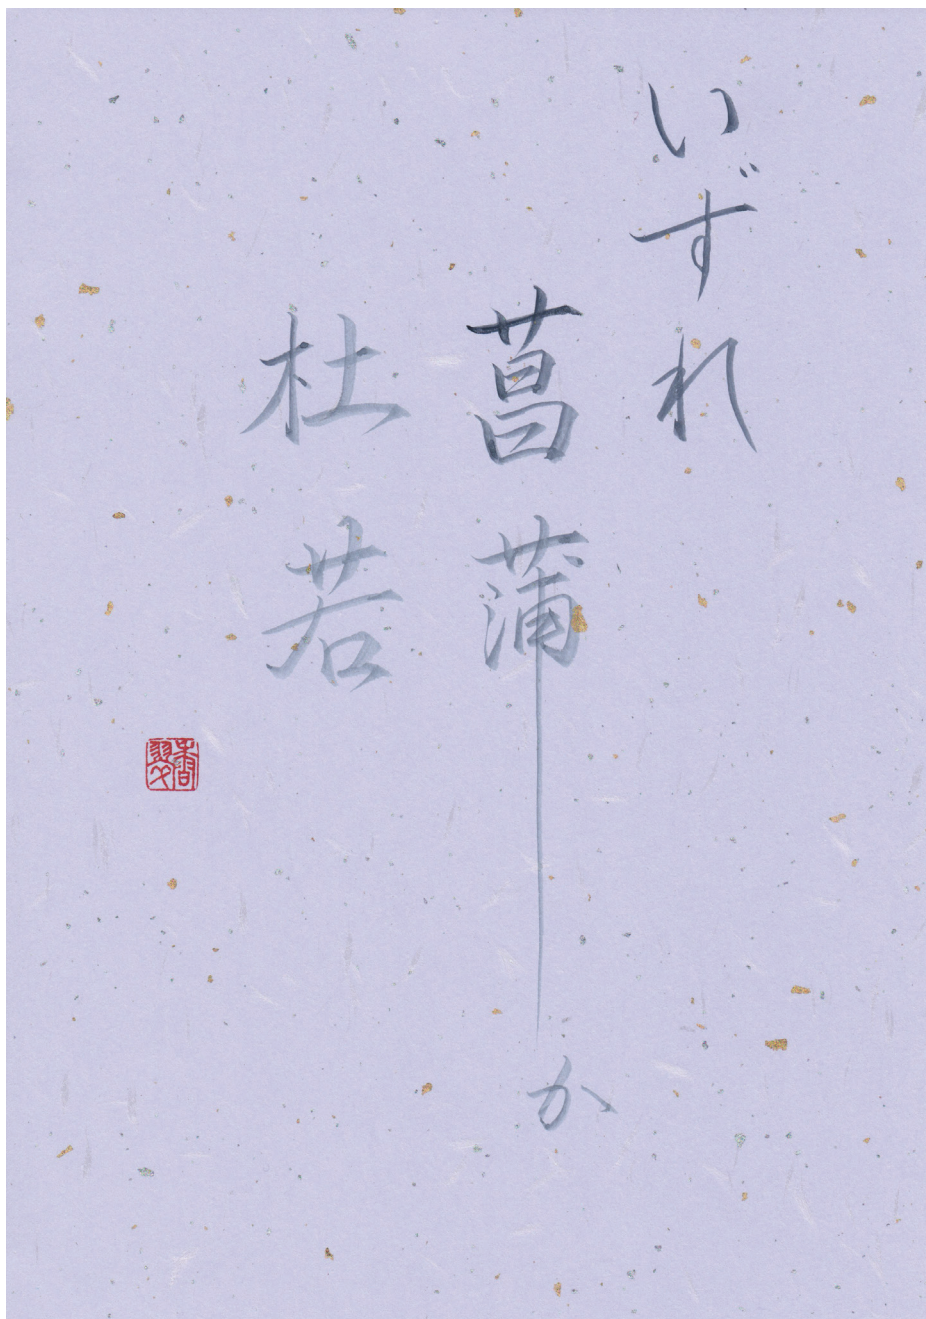 いずれ
菖蒲か
杜若
香翠